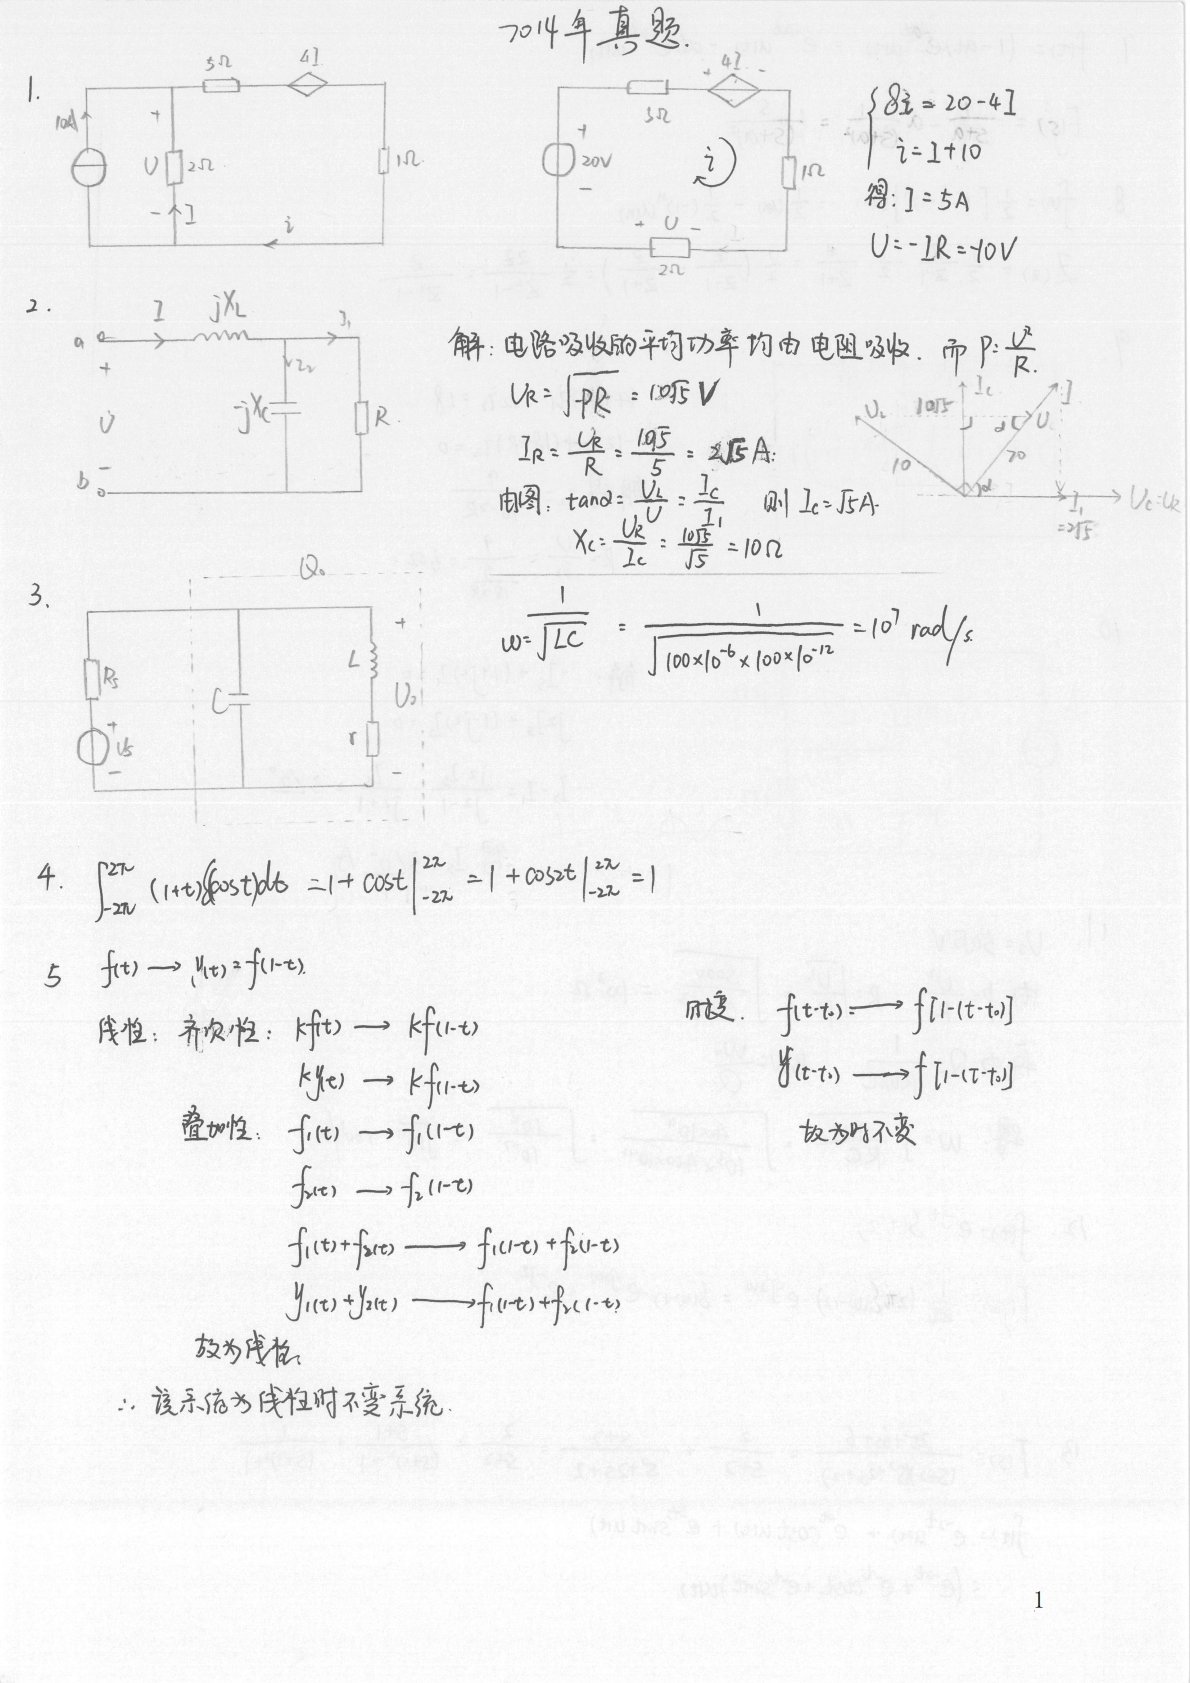 2014年真题.
1.
5Ω
4I
10A
+
U
2Ω
- I
1Ω
i
4I
+ -
5Ω
+
20V
-
i
1Ω
+ U -
2Ω
8i = 20-4I
i = I+10
得: I = 5A
U = -IR = -10V
2.
a
I
jXL
I1
+
I2
U̇
-jXc
R
-
b
解: 电路吸收的平均功率均由电阻吸收. 而 P = U²/R.
UR = √PR = 10√5 V
IR = UR/R = 10√5/5 = 2√5 A.
由图: tanα = UL/U = Ic/I1 则 Ic = √5A.
Xc = UR/Ic = 10√5/√5 = 10Ω
UL
10√5
Ic
I
U
10
20
α
I1
=2√5
Uc=UR
3.
Q0
Rs
+
Us
-
C
L
r
+
U0
-
ω = 1/√LC = 1/√100×10⁻⁶×100×10⁻¹² = 10⁷ rad/s.
4. ∫_{-2π}^{2π} (1+t)δ(cost)dt = 1 + cost|_{-2π}^{2π} = 1 + cos2t|_{-2π}^{2π} = 1
5 f(t) → y(t) = f(1-t).
线性: 齐次性: kf(t) → kf(1-t)
ky(t) → kf(1-t)
叠加性: f1(t) → f1(1-t)
f2(t) → f2(1-t)
f1(t)+f2(t) → f1(1-t)+f2(1-t)
y1(t)+y2(t) → f1(1-t)+f2(1-t)
故为线性.
时变. f(t-t0) → f[1-(t-t0)]
y(t-t0) → f[1-(t-t0)]
故为时不变
∴ 该系统为线性时不变系统.
1